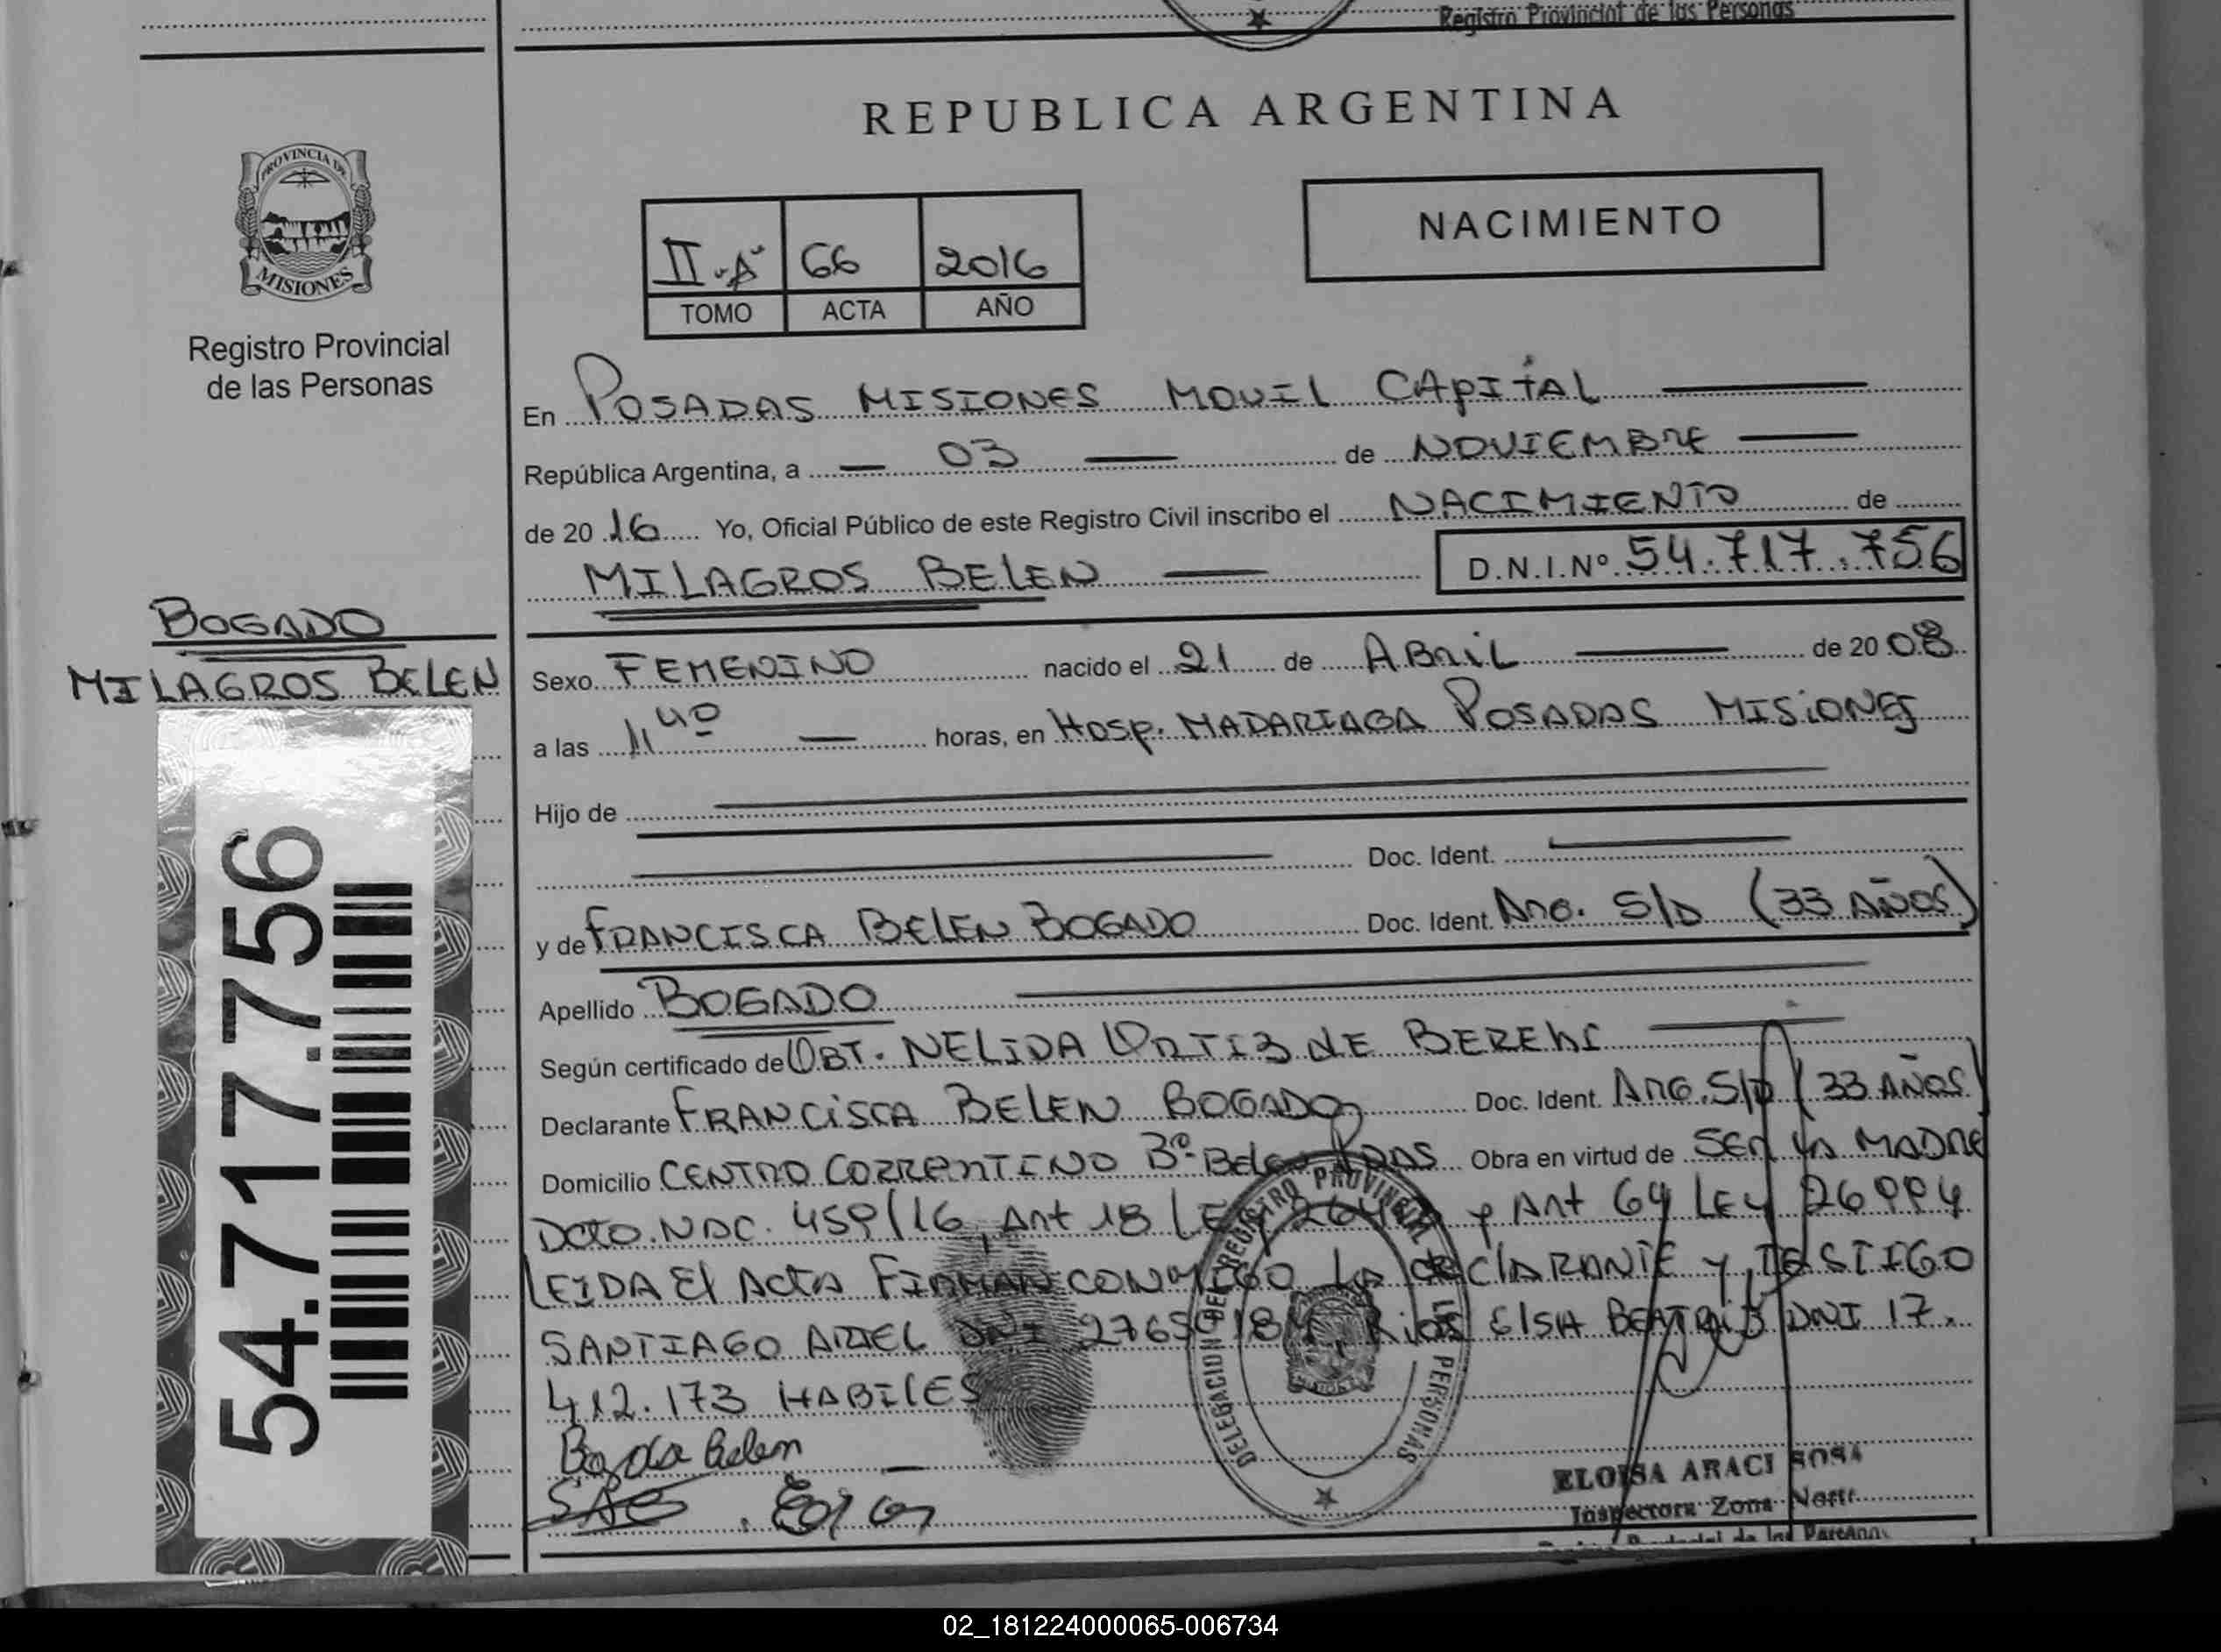 Registro Provincial de las Personas
REPUBLICA ARGENTINA
PROVINCIA DE
MISIONES
Registro Provincial
de las Personas
II "A" 66 2016
TOMO ACTA AÑO
NACIMIENTO
En POSADAS MISIONES MOVIL CAPITAL
República Argentina, a 03 de NOVIEMBRE
de 20 16 Yo, Oficial Público de este Registro Civil inscribo el NACIMIENTO de
MILAGROS BELEN D.N.I.Nº 54.717.756
BOGADO
MILAGROS BELEN
54.717.756
Sexo FEMENINO nacido el 21 de ABRIL de 20 08
a las 11 40 horas, en HOSP. MADARIAGA POSADAS MISIONES
Hijo de
Doc. Ident.
y de FRANCISCA BELEN BOGADO Doc. Ident. ARG. S/D (33 AÑOS)
Apellido BOGADO
Según certificado de OBT. NELIDA ORTIZ DE
Declarante FRANCISCA BELEN BOGADO Doc. Ident. ARG. S/D (33 AÑOS)
Domicilio CENTRO CORRENTINO Bº BELEN PDAS Obra en virtud de SER LA MADRE
DCTO. NAC. 459/16, ART 18 LEY y ART 64 LEY 26994
LEIDA El ACTA FIRMAN CONMIGO LA DECLARANTE y TESTIGO
SANTIAGO ARIEL DNI RIOS ELSA BEATRIZ DNI 17.
412.173 HABILES
Belen
DELEGACION DEL REGISTRO PROVINCIAL DE LAS PERSONAS
ELOISA ARACI SOSA
Inspectora Zona Norte
Registro Provincial de las Personas
02_181224000065-006734